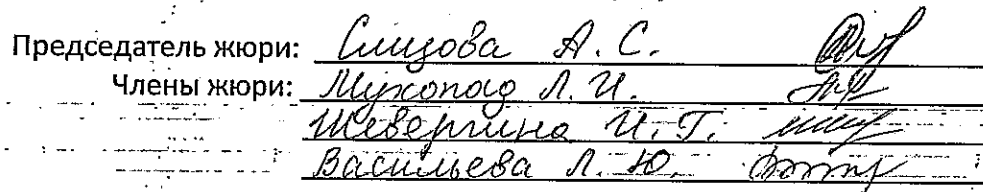 Председатель жюри: Слизова А. С.
Члены жюри: Мухопад Л. И.
Шевергина И. Г.
Васильева Л. Ю.